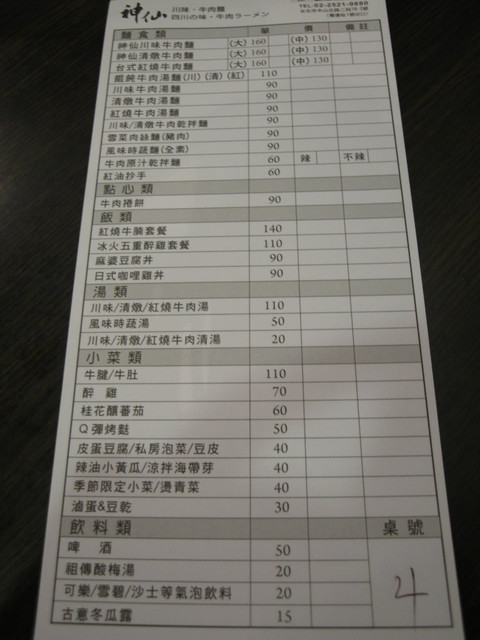 神仙 川味・牛肉麵
四川の味・牛肉ラーメン
TEL:02-2521-0880
麵食類 單 價 備註
神仙川味牛肉麵 (大) 160 (中) 130
神仙清燉牛肉麵 (大) 160 (中) 130
台式紅燒牛肉麵 (大) 160 (中) 130
餛飩牛肉湯麵(川)(清)(紅) 110
川味牛肉湯麵 90
清燉牛肉湯麵 90
紅燒牛肉湯麵 90
川味/清燉牛肉乾拌麵 90
雪菜肉絲麵(豬肉) 90
風味時蔬麵(全素) 90
牛肉原汁乾拌麵 60 辣 不辣
紅油抄手 60
點心類
牛肉捲餅 90
飯類
紅燒牛腩套餐 140
冰火五重醉雞套餐 110
麻婆豆腐丼 90
日式咖哩雞丼 90
湯類
川味/清燉/紅燒牛肉湯 110
風味時蔬湯 50
川味/清燉/紅燒牛肉清湯 20
小菜類
牛腱/牛肚 110
醉 雞 70
桂花釀蕃茄 60
Q彈烤麩 50
皮蛋豆腐/私房泡菜/豆皮 40
辣油小黃瓜/涼拌海帶芽 40
季節限定小菜/燙青菜 40
滷蛋&豆乾 30
飲料類 桌號
啤 酒 50
祖傳酸梅湯 20
可樂/雪碧/沙士等氣泡飲料 20
古意冬瓜露 15
4